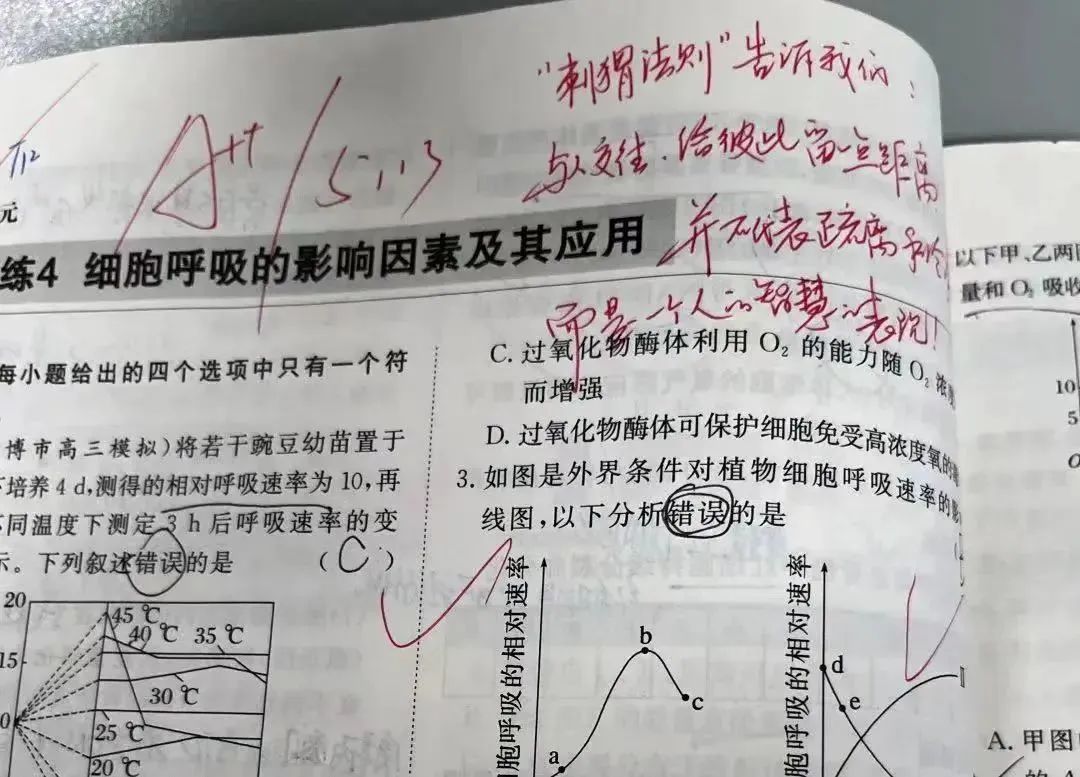 "刺猬法则"告诉我们:
与人交往,给彼此留一点距离
并不代表疏离和冷
而是一个人的智慧的表现!
A++
5.13
元
练4 细胞呼吸的影响因素及其应用
每小题给出的四个选项中只有一个符
博市高三模拟)将若干豌豆幼苗置于
培养4 d,测得的相对呼吸速率为10,再
同温度下测定3 h后呼吸速率的变
示。下列叙述错误的是 (C)
20
15
0
45 ℃
40 ℃ 35 ℃
30 ℃
25 ℃
20 ℃
C. 过氧化物酶体利用O₂的能力随O₂浓度
而增强
D. 过氧化物酶体可保护细胞免受高浓度氧的
3. 如图是外界条件对植物细胞呼吸速率的影
线图,以下分析错误的是
胞呼吸的相对速率
a
b
c
胞呼吸的相对速率
d
e
以下甲、乙两
量和O₂吸收
10
5
A. 甲图